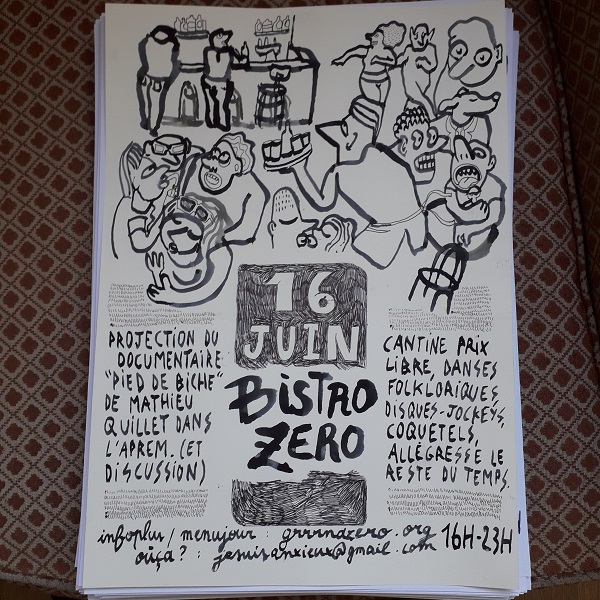 16
JUIN
BISTRO
ZERO
PROJECTION DU
DOCUMENTAIRE
"PIED DE BICHE"
DE MATHIEU
QUILLET DANS
L'APREM. (ET
DISCUSSION)
CANTINE PRIX
LIBRE, DANSES
FOLKLORIQUES,
DISQUES-JOCKEYS,
COQUETELS,
ALLÉGRESSE LE
RESTE DU TEMPS.
infoplus / menujour : grrrndzero.org 16H-23H
oùça ? : jesuisanxieux@gmail.com